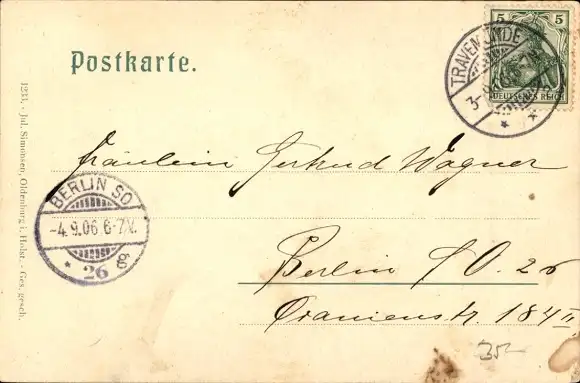 Postkarte.
5 5
DEUTSCHES REICH
TRAVEMÜNDE
Fräulein Gertrud Wagner
BERLIN SO
-4.9.06.6-7V.
* 26 g
Berlin S O. 26
Oranienstr. 184 II
35-
1233. - Jul. Simonsen, Oldenburg i. Holst. - Ges. gesch.